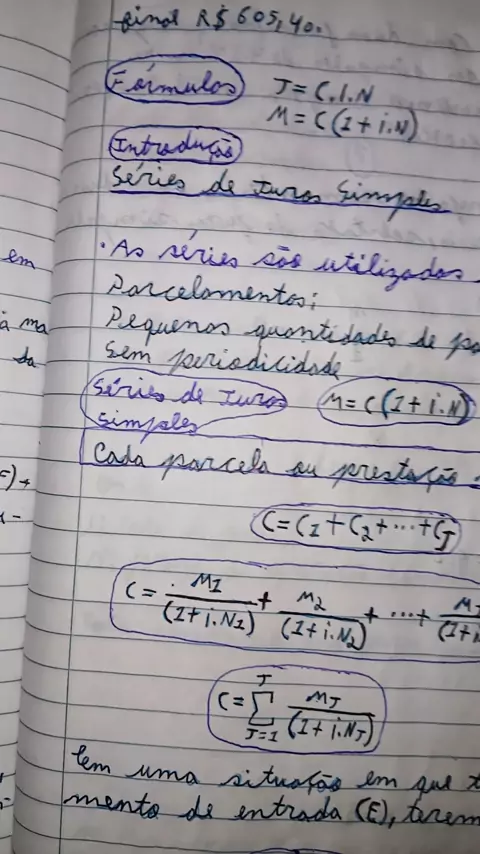 final R$ 605,40.
Fórmulas J = C.I.N
M = C(1 + i.N)
Introdução
Séries de Juros Simples
• As séries são utilizadas
em
Parcelamentos;
Pequenas quantidades de pa
à ma
Sem periodicidade
da
Séries de Juros Simples M = C(1 + i.N)
Cada parcela ou prestação
C = C1 + C2 + ... + CJ
C = M1/(1 + i.N1) + M2/(1 + i.N2) + ... + MJ/(1 + i
C = J∑J=1 MJ/(1 + i.NJ)
Em uma situação em que t
mento de entrada (E), terem